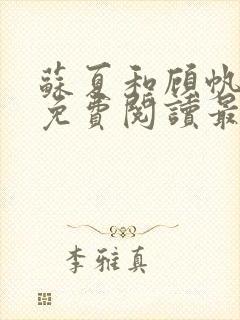 蘇夏和顧帆
免費閱讀最
李雅真